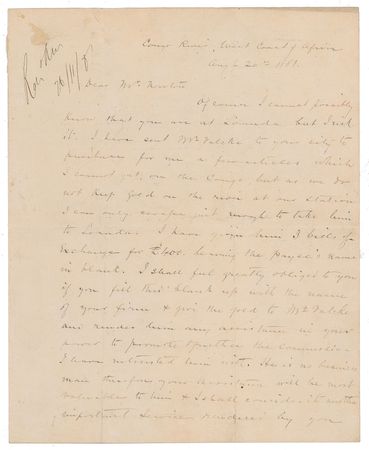 Congo River, West Coast of Africa
Aug. 20th 188
Dear Mr. Newton
Of course I cannot possibly
know that you are at Loanda but I risk
it. I have sent Mr. Valcke to your city to
purchase for me a few articles which
I cannot get on the Congo, but as we do
not keep gold on the river at our station
I can only scrape just enough to take him
to Loanda. I have given him 3 bills of
Exchange for £400. leaving the Payee's name
in blank. I shall feel greatly obliged to you
if you fill this blank up with the name
of your firm & give the gold to Mr. Valcke
and render him any assistance in your
power to promote & further the Commission
I have entrusted him with. He is no business
man therefore your assistance will be most
valuable to him & I shall consider it another
important service rendered by you